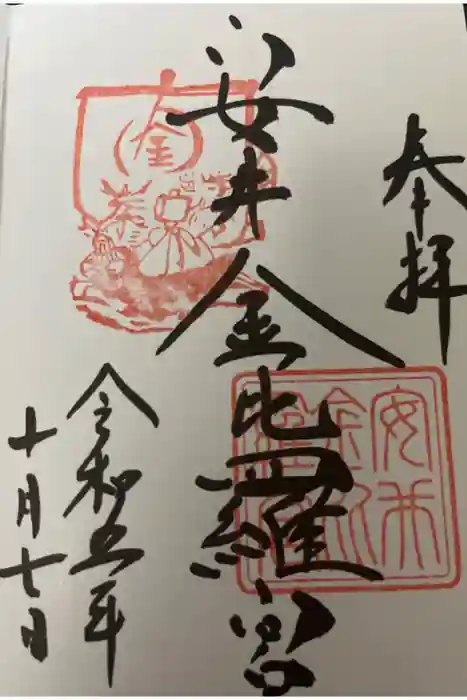 奉拝
安井金比羅宮
令和五年
十月七日
金
安井